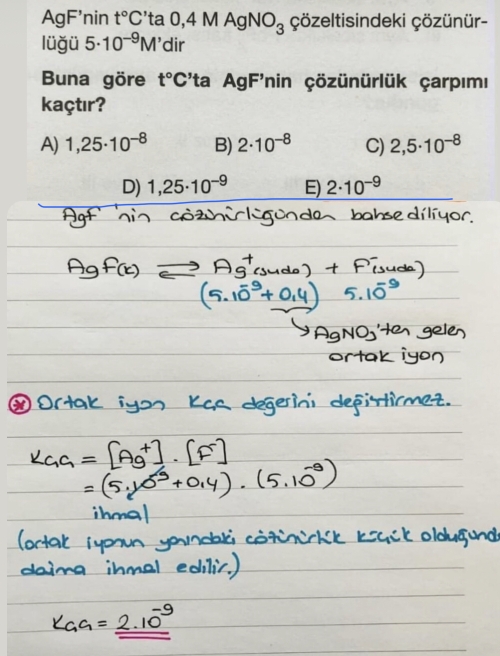 AgF'nin t°C'ta 0,4 M AgNO₃ çözeltisindeki çözünür-
lüğü 5·10⁻⁹M'dir
Buna göre t°C'ta AgF'nin çözünürlük çarpımı
kaçtır?
A) 1,25·10⁻⁸ B) 2·10⁻⁸ C) 2,5·10⁻⁸
D) 1,25·10⁻⁹ E) 2·10⁻⁹
AgF 'nin çözünürlüğünden bahsediliyor.
AgF(k) ⇌ Ag⁺(suda) + F⁻(suda)
(5.10⁻⁹+0,4) 5.10⁻⁹
↘AgNO₃'ten gelen
ortak iyon
* Ortak iyon Kçç değerini değiştirmez.
Kçç = [Ag⁺] . [F⁻]
= (5.10⁻⁹+0,4) . (5.10⁻⁹)
ihmal
(ortak iyonun yanındaki çözünürlük küçük olduğunda
daima ihmal edilir.)
Kçç = 2.10⁻⁹